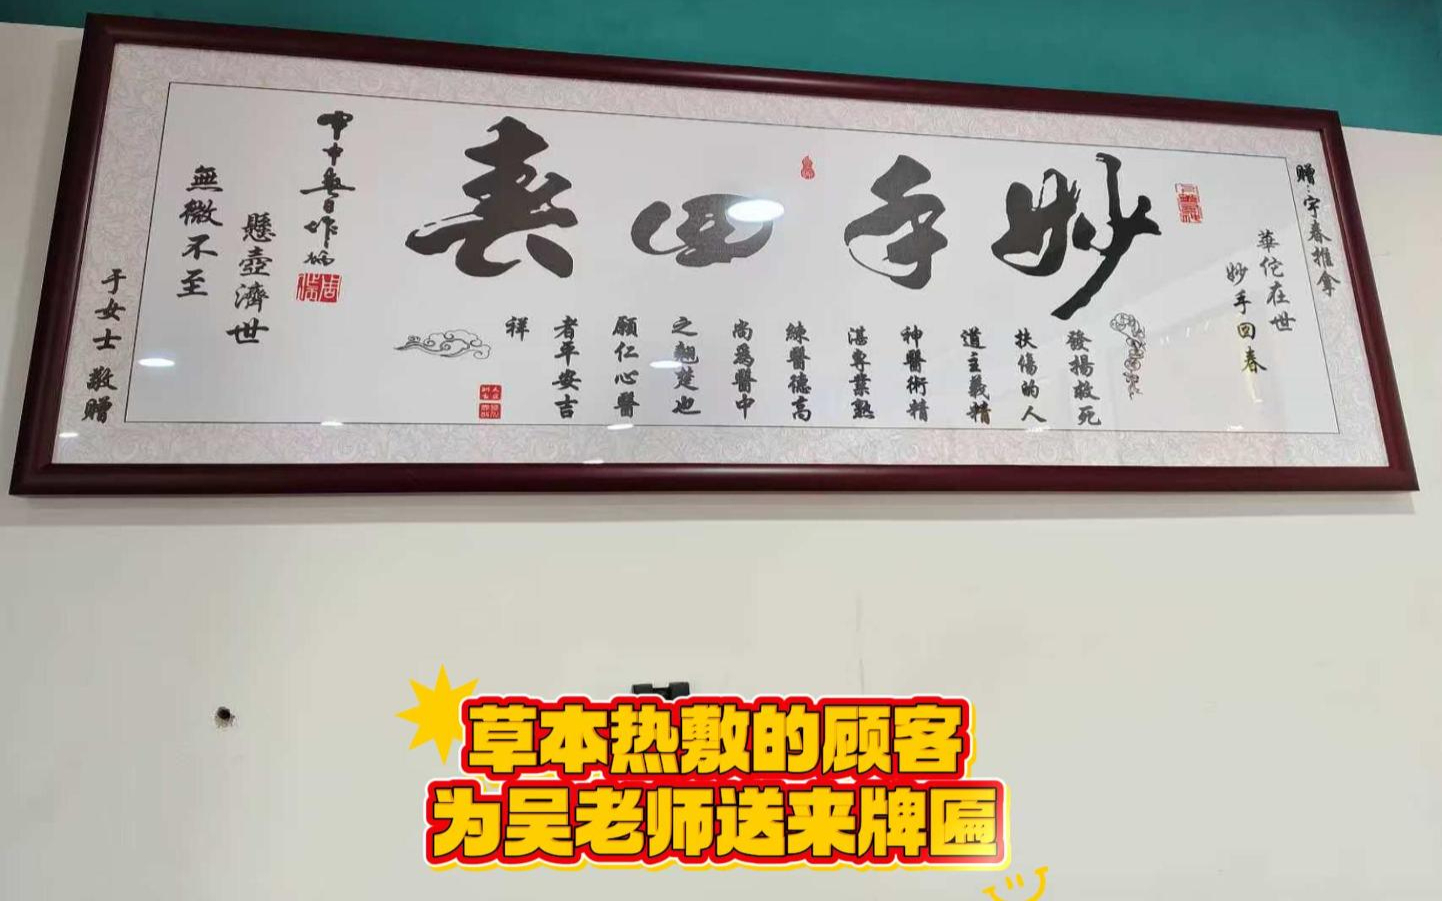 贈·宇春推拿
華佗在世
妙手回春
妙手回春
發揚救死
扶傷的人
道主義精
神醫術精
湛專業熟
練醫德高
尚爲醫中
之翹楚也
願仁心醫
者平安吉
祥
懸壺濟世
無微不至
于女士 敬贈
草本热敷的顾客
为吴老师送来牌匾